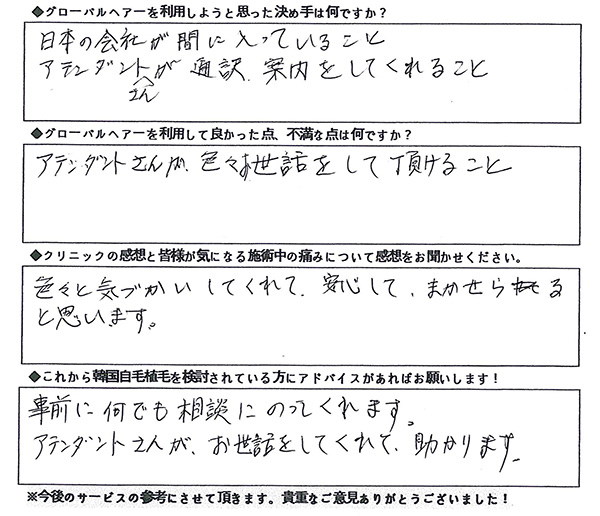 ◆グローバルヘアーを利用しようと思った決め手は何ですか?
日本の会社が間に入っていること
アテンダントさんが通訳、案内をしてくれること
◆グローバルヘアーを利用して良かった点、不満な点は何ですか?
アテンダントさんが、色々お世話をして頂けること
◆クリニックの感想と皆様が気になる施術中の痛みについて感想をお聞かせください。
色々と気づかいしてくれて、安心して、まかせられる
と思います。
◆これから韓国自毛植毛を検討されている方にアドバイスがあればお願いします!
事前に何でも相談にのってくれます。
アテンダントさんが、お世話をしてくれて、助かります。
※今後のサービスの参考にさせて頂きます。貴重なご意見ありがとうございました!